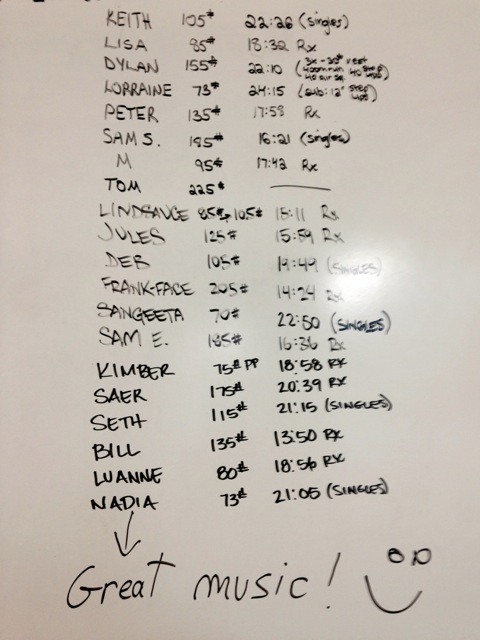 KEITH 105# 22:26 (singles)
LISA 85# 18:32 Rx
DYLAN 155# 22:10 (3x - 20# vest 400m run 40 step 40 air sq. ups)
LORRAINE 73# 24:15 (sub: 12" step ups)
PETER 135# 17:58 Rx
SAM S. 185# 16:21 (singles)
M 95# 17:42 Rx
TOM 225#
LINDSAUCE 85# 105# 15:11 Rx
JULES 125# 15:59 Rx
DEB 105# (SINGLES)
FRANK-FACE 205# 14:24 Rx
SANGEETA 70# 22:50 (SINGLES)
SAM E. 185# 16:36 Rx
KIMBER 75# PP 18:58 RX
SAER 175# 20:39 RX
SETH 115# 21:15 (SINGLES)
BILL 135# 13:50 RX
LUANNE 80# 18:56 RX
NADIA 73# 21:05 (SINGLES)
Great music!